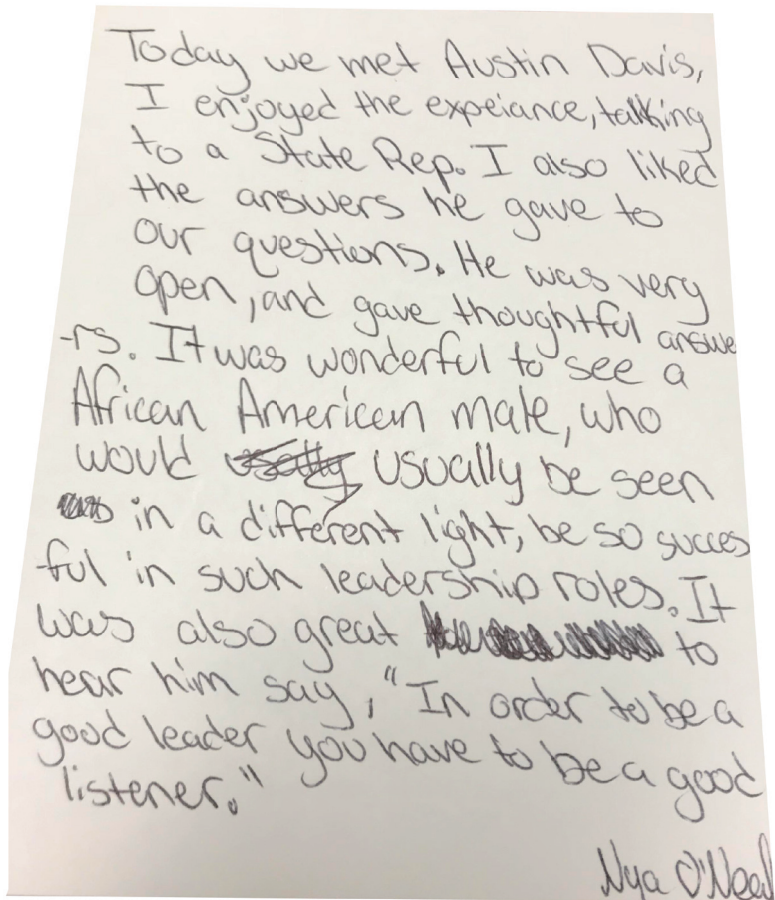 Today we met Austin Davis,
I enjoyed the expeiance, talking
to a State Rep. I also liked
the answers he gave to
our questions. He was very
open, and gave thoughtful answe
-rs. It was wonderful to see a
African American male, who
would usually be seen
in a different light, be so succes
-ful in such leadership roles. It
was also great to
hear him say, "In order to be a
good leader you have to be a good
listener."
Nya O'Neal